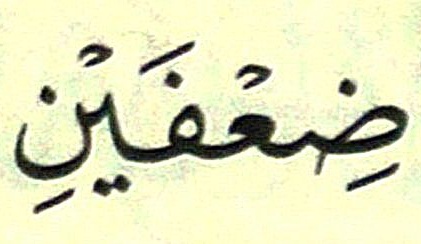 ضِعْفَيْنِ